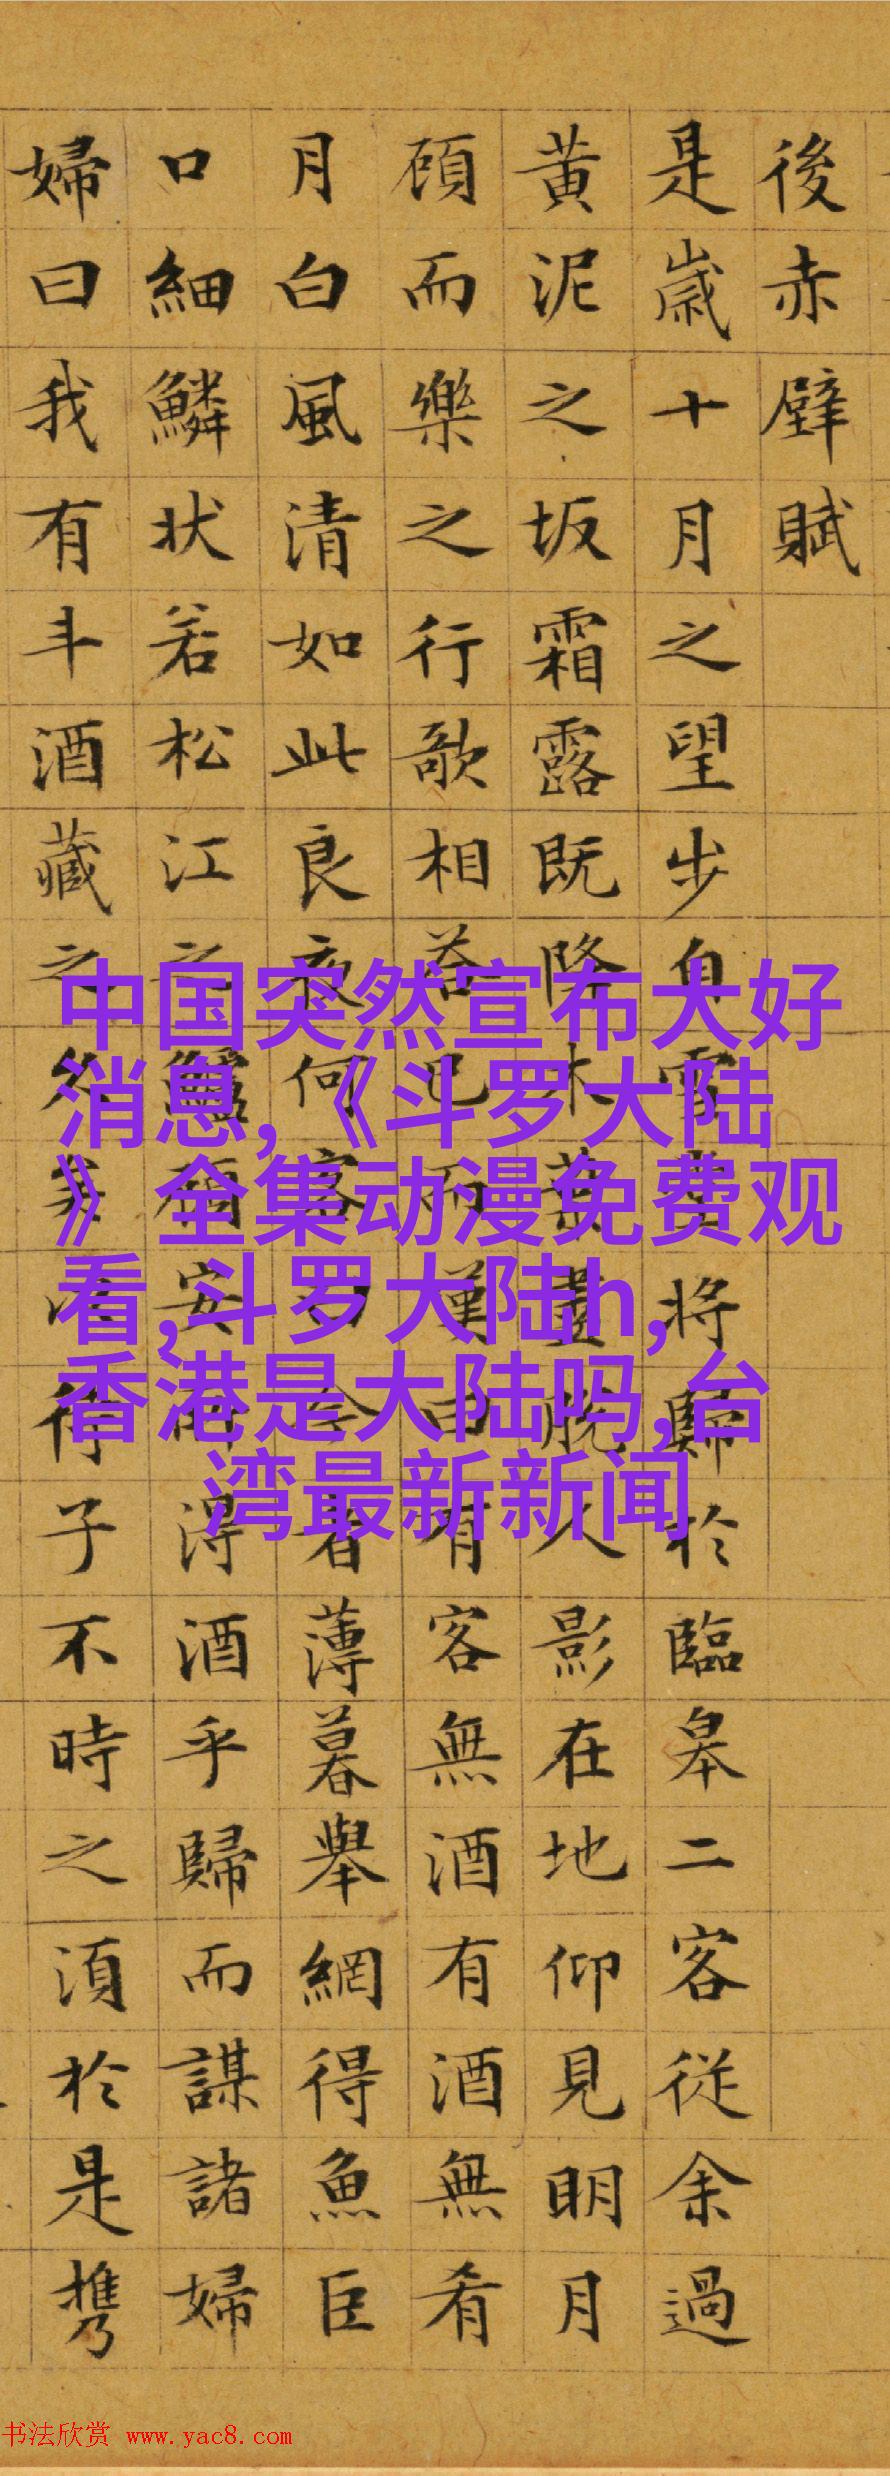 後赤壁賦
是歳十月之望步自雪堂將歸於臨皋二客從余過
黃泥之坂霜露既降木葉盡脫人影在地仰見明月
顧而樂之行歌相荅已而嘆曰有客無酒有酒無肴
月白風清如此良夜何客曰今者薄暮舉網得魚臣
口細鱗狀若松江之鱸顧安所得酒乎歸而謀諸婦
婦曰我有斗酒藏之久矣以待子不時之湏於是携
中国突然宣布大好
消息,《斗罗大陆
》全集动漫免费观
看,斗罗大陆h,
香港是大陆吗,台
湾最新新闻
书法欣赏 www.yac8.com